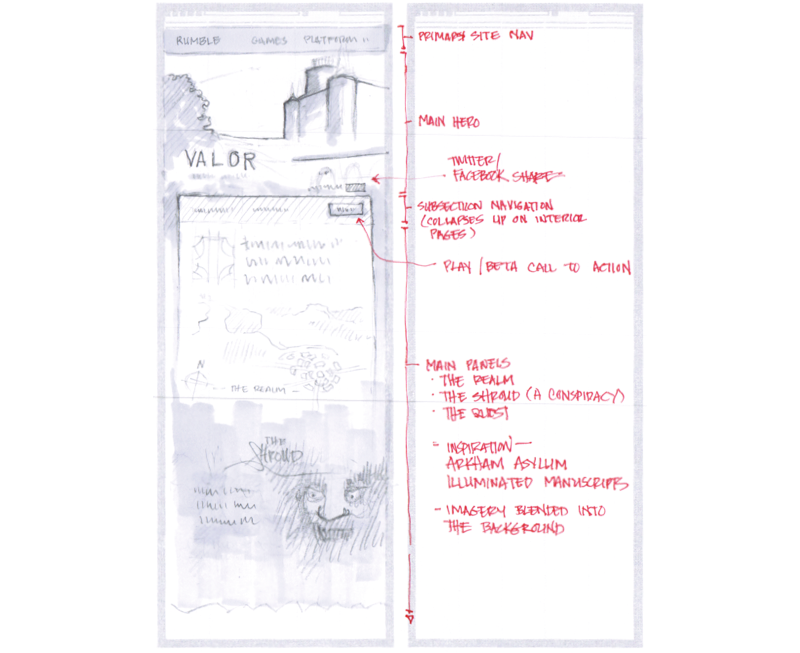 RUMBLE GAMES PLATFORM
PRIMARY SITE NAV
MAIN HERO
VALOR
TWITTER/
FACEBOOK SHARE
SUBSECTION NAVIGATION
(COLLAPSES UP ON INTERIOR
PAGES)
PLAY/BETA CALL TO ACTION
MAIN PANELS
· THE REALM
· THE SHROUD (A CONSPIRACY)
· THE QUEST
N
- THE REALM -
THE
SHROUD
- INSPIRATION—
ARKHAM ASYLUM
ILLUMINATED MANUSCRIPTS
- IMAGERY BLENDED INTO
THE BACKGROUND